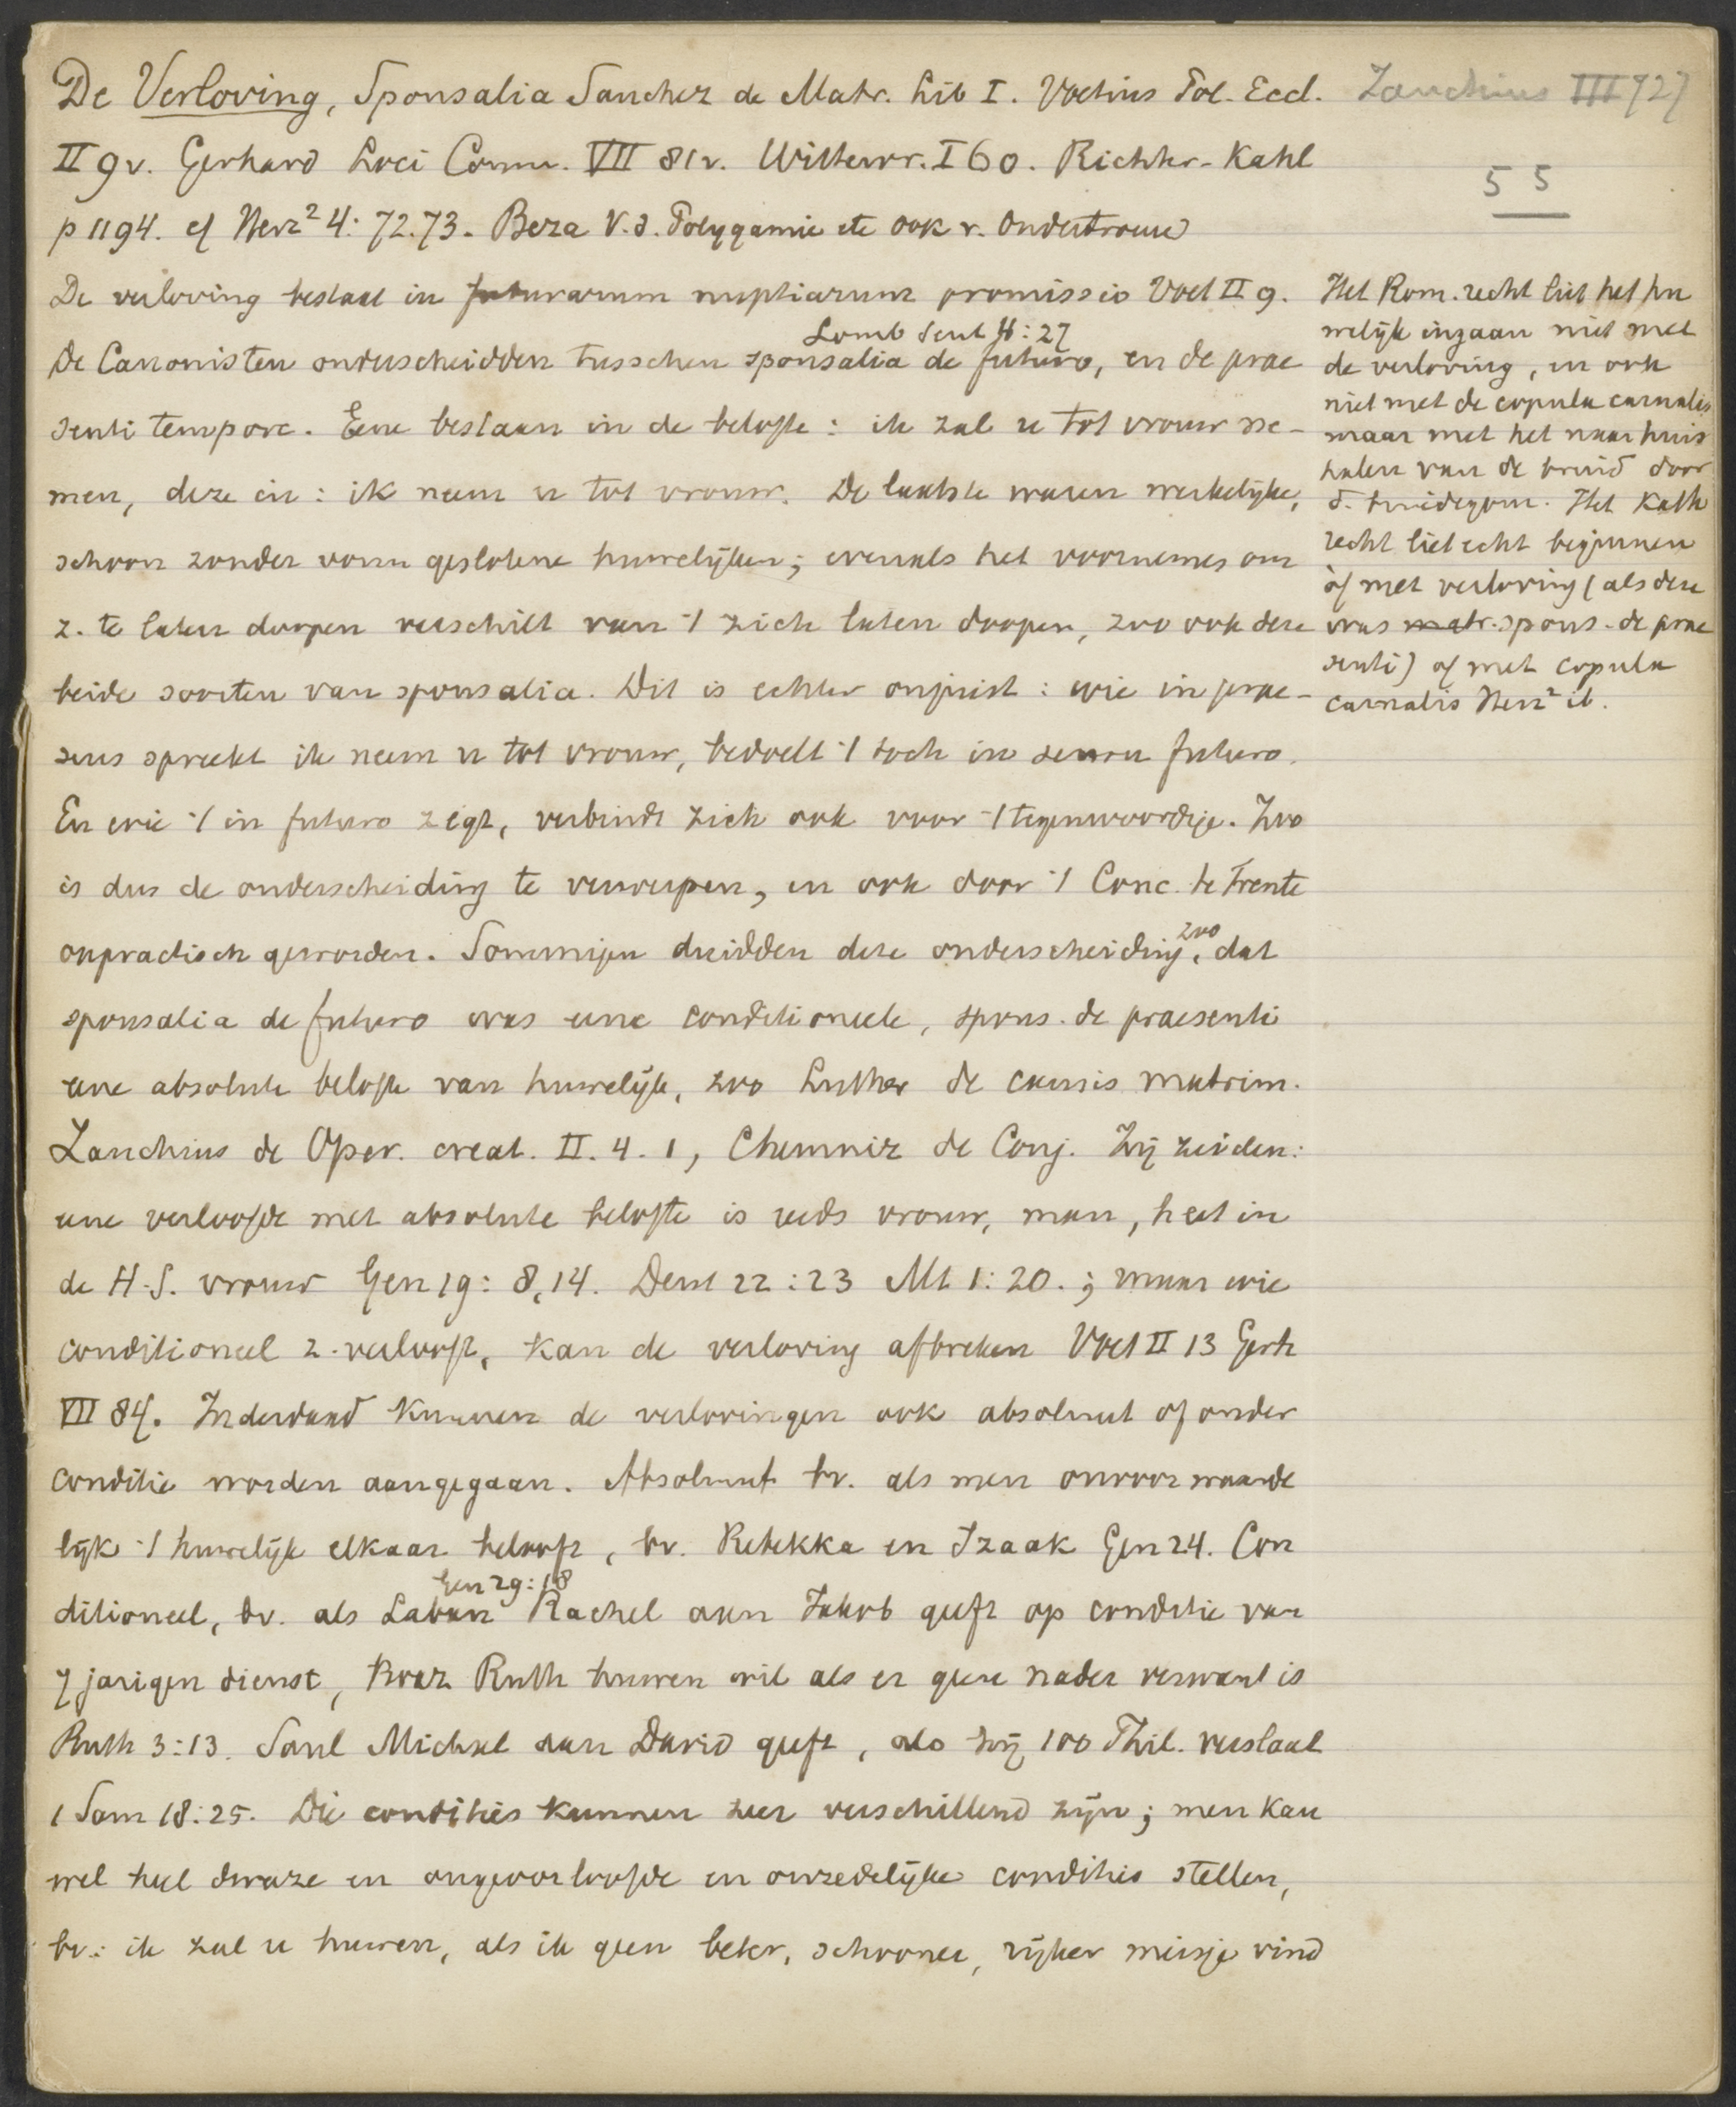 De Verloving, Sponsalia Sanchez de Matr. Lib I. Voetius Pol. Eccl. Zanchius III 727
II 9v. Gerhard Loci Comm. VII 81v. Wittewr. I 60. Richter-Kahl
55
p 1194. cf Herz² 4: 72.73. Beza v.d. Polygamie etc ook v. Ondertrouw
De verloving bestaat in futurarum nuptiarum promissio Voet II 9.
Lomb Sent 4:27
De Canonisten onderscheidden tusschen sponsalia de futuro, en de prae
senti tempore. Eene bestaan in de belofte: ik zal u tot vrouw ne-
men, deze in: ik neem u tot vrouw. De laatste waren werkelijke,
schoon zonder vorm geslotene huwelijken; evenals het voornemes om
z. te laten doopen verschilt van 't zich laten doopen, zoo ook deze
beide soorten van sponsalia. Dit is echter onjuist: wie in prae-
sens spreekt ik neem u tot vrouw, bedoelt 't toch in sensu futuro.
En wie 't in futuro zegt, verbindt zich ook voor 't tegenwoordige. Zoo
is dus de onderscheiding te verwerpen, en ook door 't Conc. te Trente
onpractisch geworden. Sommigen duidden deze onderscheiding zoo, dat
sponsalia de futuro was eene conditioneele, spons. de praesenti
eene absolute belofte van huwelijk, zoo Luther de causis matrim.
Zanchius de Oper. creat. II. 4. 1, Chemniz de Conj. Zij zeiden:
eene verloofde met absolute belofte is reeds vrouw, man, heet in
de H.S. vrouw Gen 19: 8,14. Deut 22:23 Mt 1:20.; maar wie
conditioneel z. verlooft, kan de verloving afbreken Voet II 13 Gerh
VII 84. Inderdaad kunnen de verlovingen ook absoluut of onder
conditie worden aangegaan. Absoluut bv. als men onvoorwaarde
lijk 't huwelijk elkaar belooft, bv. Rebekka en Izaak Gen 24. Con
Gen 29:18
ditioneel, bv. als Laban Rachel aan Jakob geeft op conditie van
7 jarigen dienst, Boaz Ruth huwen wil als er geen nader verwant is
Ruth 3:13. Saul Michal aan David geeft, als hij 100 Phil. verslaat
1 Sam 18:25. Die condities kunnen zeer verschillend zijn; men kan
wel heel dwaze en ongeoorloofde en onzedelijke condities stellen,
bv.: ik zal u huwen, als ik geen beter, schooner, rijker meisje vind
Het Rom. recht liet het hu
welijk ingaan niet met
de verloving, en ook
niet met de copula carnalis
maar met het naar huis
halen van de bruid door
d. bruidegom. Het Kath
recht liet echt beginnen
òf met verloving (als deze
was matr. spons. de prae
senti) of met copula
carnalis Herz² ib.